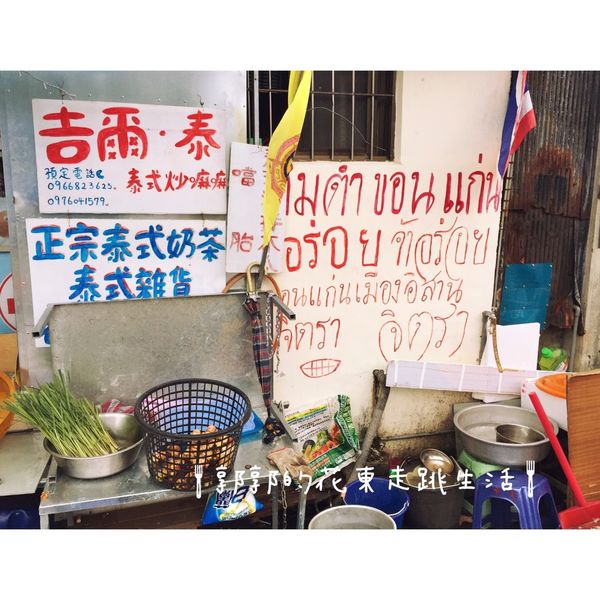 吉爾·泰
預定電話
0966823625.
0976041579.
泰式炒嘛嘛
正宗泰式奶茶
泰式雜貨
噹
胎
มตำขอนแก่น
อร่อย จ้าอร่อย
อนแก่นเมืองอิสาน
จิตรา จิตรา
的花東走跳生活